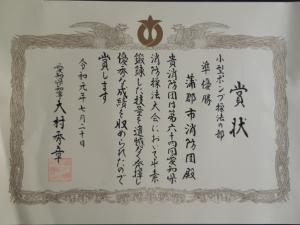 賞状
小型ポンプ操法の部
準優勝
蒲郡市消防団殿
貴消防団は第六十四回愛知県
消防操法大会において平素
鍛錬した技量を遺憾なく発揮し
優秀な成績を収められたので
賞します
令和元年七月二十日
愛知県知事 大村秀章